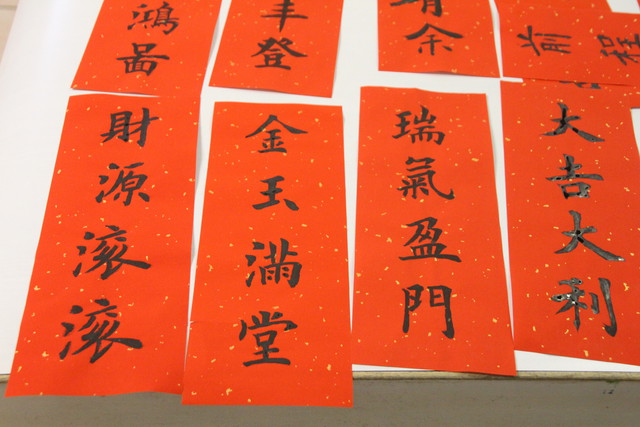 鴻圖
丰登
余
前程
財源滾滾
金玉滿堂
瑞氣盈門
大吉大利